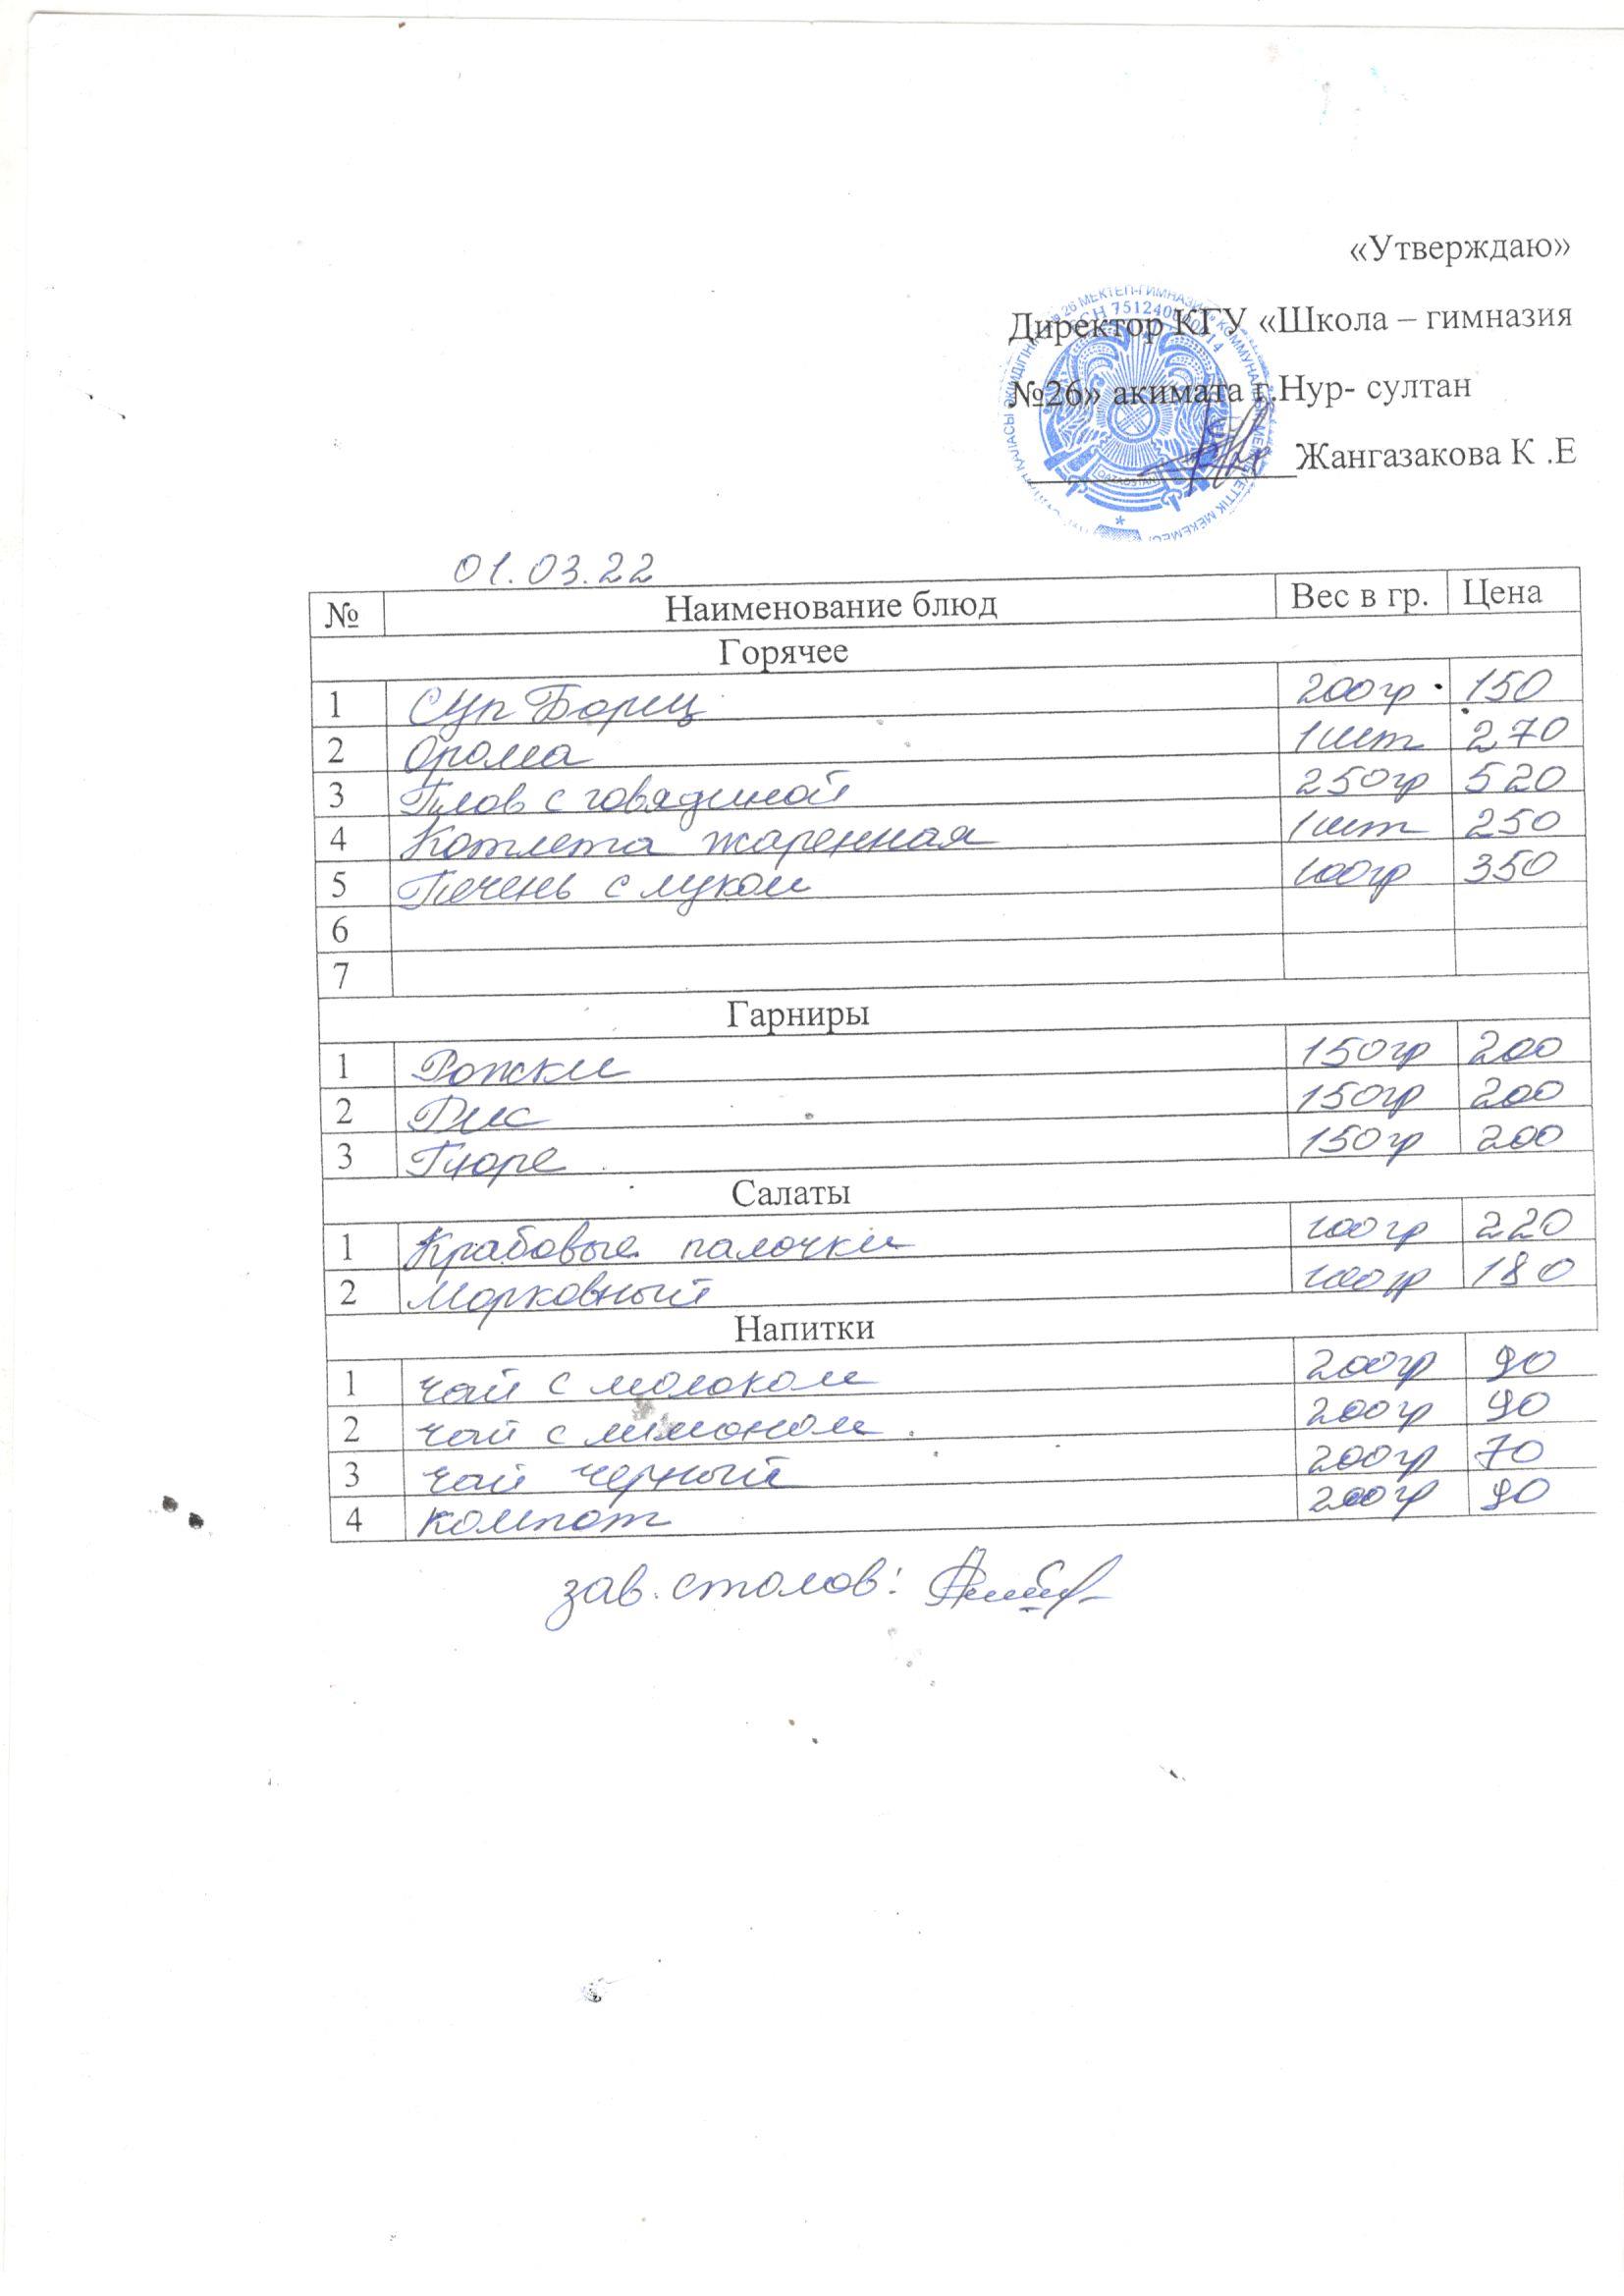 «Утверждаю»
Директор КГУ «Школа – гимназия
№26» акимата г.Нур- султан
Жангазакова К .Е
QAZAQSTAN
01.03.22
№ Наименование блюд Вес в гр. Цена
Горячее
1 Суп Борщ 200гр 150
2 Орома 1шт 270
3 Плов с говядиной 250гр 520
4 Котлета жаренная 1шт 250
5 Печень с луком 100гр 350
6
7
Гарниры
1 Рожки 150гр 200
2 Рис 150гр 200
3 Пюре 150гр 200
Салаты
1 Крабовые палочки 100гр 220
2 Морковный 100гр 180
Напитки
1 чай с молоком 200гр 90
2 чай с лимоном 200гр 90
3 чай черный 200гр 70
4 компот 200гр 90
зав. столов: